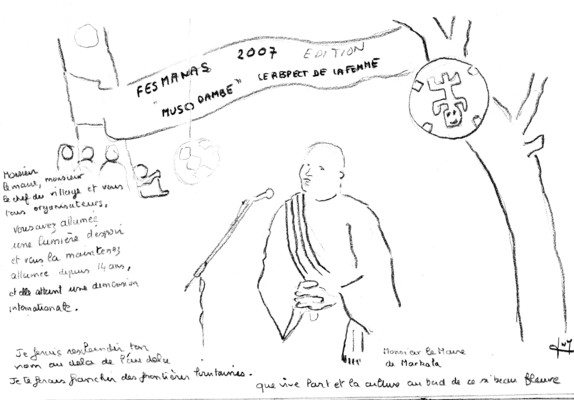 FESMANAS 2007 EDITION
"MUSO DAMBE" LE RESPECT DE LA FEMME
Monsieur
le maire, monsieur
le chef du village et vous
tous organisateurs,
vous avez allumée
une lumière d'espoir
et vous la maintenez
allumée depuis 14 ans,
et elle atteint une dimension
internationale.
Je ferais resplendir ton
nom au delà de
Je te ferais franchir des frontières
Monsieur le Maire
de Markala
que vive l'art et la culture au bord de ce si beau fleuve